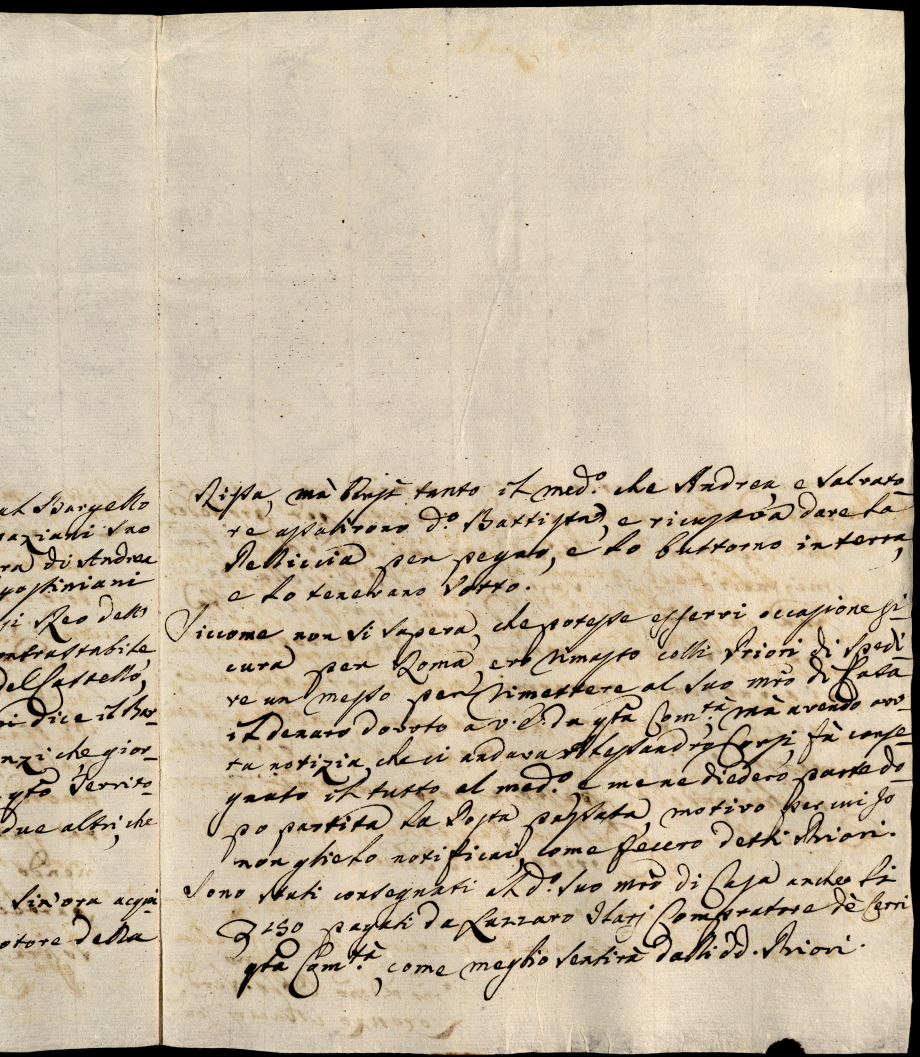 al Bargello
paziani suo
ra di Andrea
gostiniani
si Reo dello
ontrastabile
del Castello,
ni dice il Bar-
nzi che gior-
qto Territo-
due altri, che
sin'ora acqui-
otore della
Rissa, mà tanto il med.o che Andrea, e Salvato
re assalirono d.o Battista, e ricusava dare la
Pelliccia per pegno, e lo buttorno in terra,
e lo tenevano sotto.
Siccome non si sapeva, che potesse esservi occasione si-
cura per Roma, ero rimasto colli Priori di spedi
re un messo per rimettere al suo mro di Casa
il denaro dovuto a V. E. da qta Com.tà, mà avendo avu-
ta notizia, che ci andava Alessandro Corsi, fù conse-
gnato il tutto al med.o, e me ne diedero parte do-
po partita la Posta passata, motivo per cui Io
non glielo notificai, come fecero detti Priori.
Sono stati consegnati al d.o suo mro di Casa anche li
130 pagati da Lazzaro Ilarj Compratore de Cerri
qta Com.tà, come meglio sentirà dalli dd. Priori.